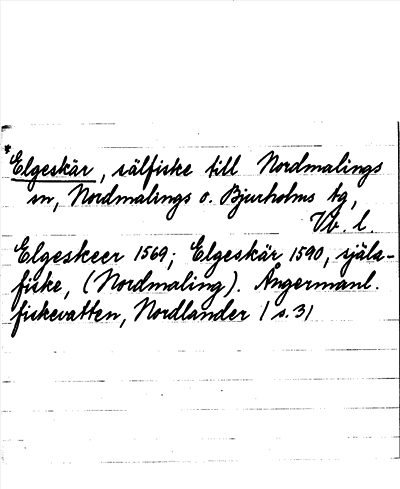 *Elgeskär, sälfiske till Nordmalings
sn, Nordmalings o. Bjurholms tg,
Vb. l.
Elgeskeer 1569; Elgeskär 1590, själs-
fiske, (Nordmaling). Ångermanl.
fiskevatten, Nordlander 1 s. 31